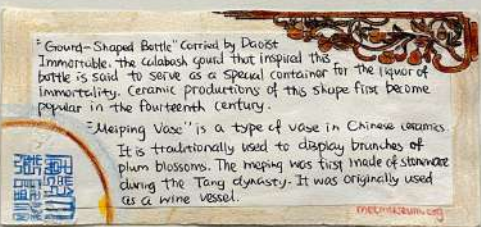 "Gourd-Shaped Bottle" Carried by Daoist
Immortable. the calabash gourd that inspired this
bottle is said to serve as a special container for the liquor of
immortality. Ceramic productions of this shape first become
popular in the fourteenth century.
"Meiping Vase" is a type of vase in Chinese ceramics.
It is traditionally used to display brunches of
plum blossoms. The meping was first made of stoneware
during the Tang dynasty. It was originally used
as a wine vessel.
metmuseum.org